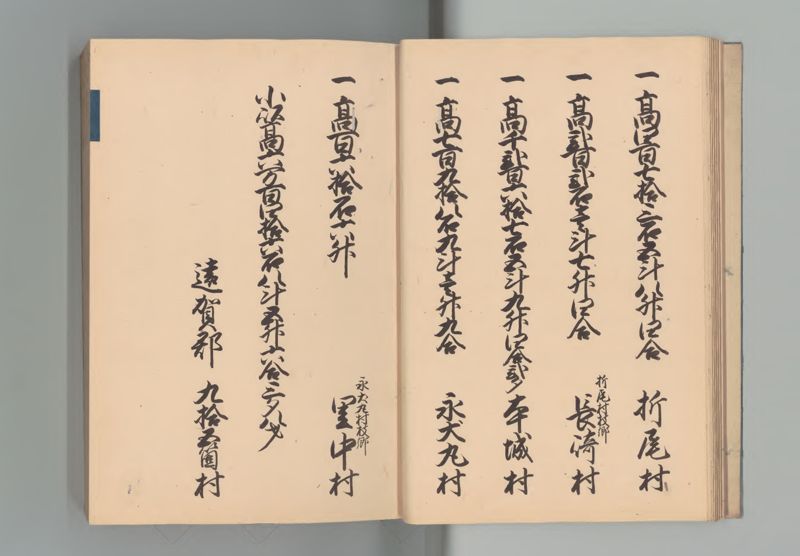 一 高四百七拾三石五斗八升四合 折尾村
一 高弐百弐石壱斗七升四合 折尾村枝郷 長崎村
一 高千弐百六拾七石五斗九升四合弐夕 本城村
一 高七百九拾八石九斗壱升九合 永犬丸村
一 高百六拾石六升 永犬丸村枝郷 里中村
小以高六万百四拾六石八斗五升六合三夕八才
遠賀郡 九拾五箇村